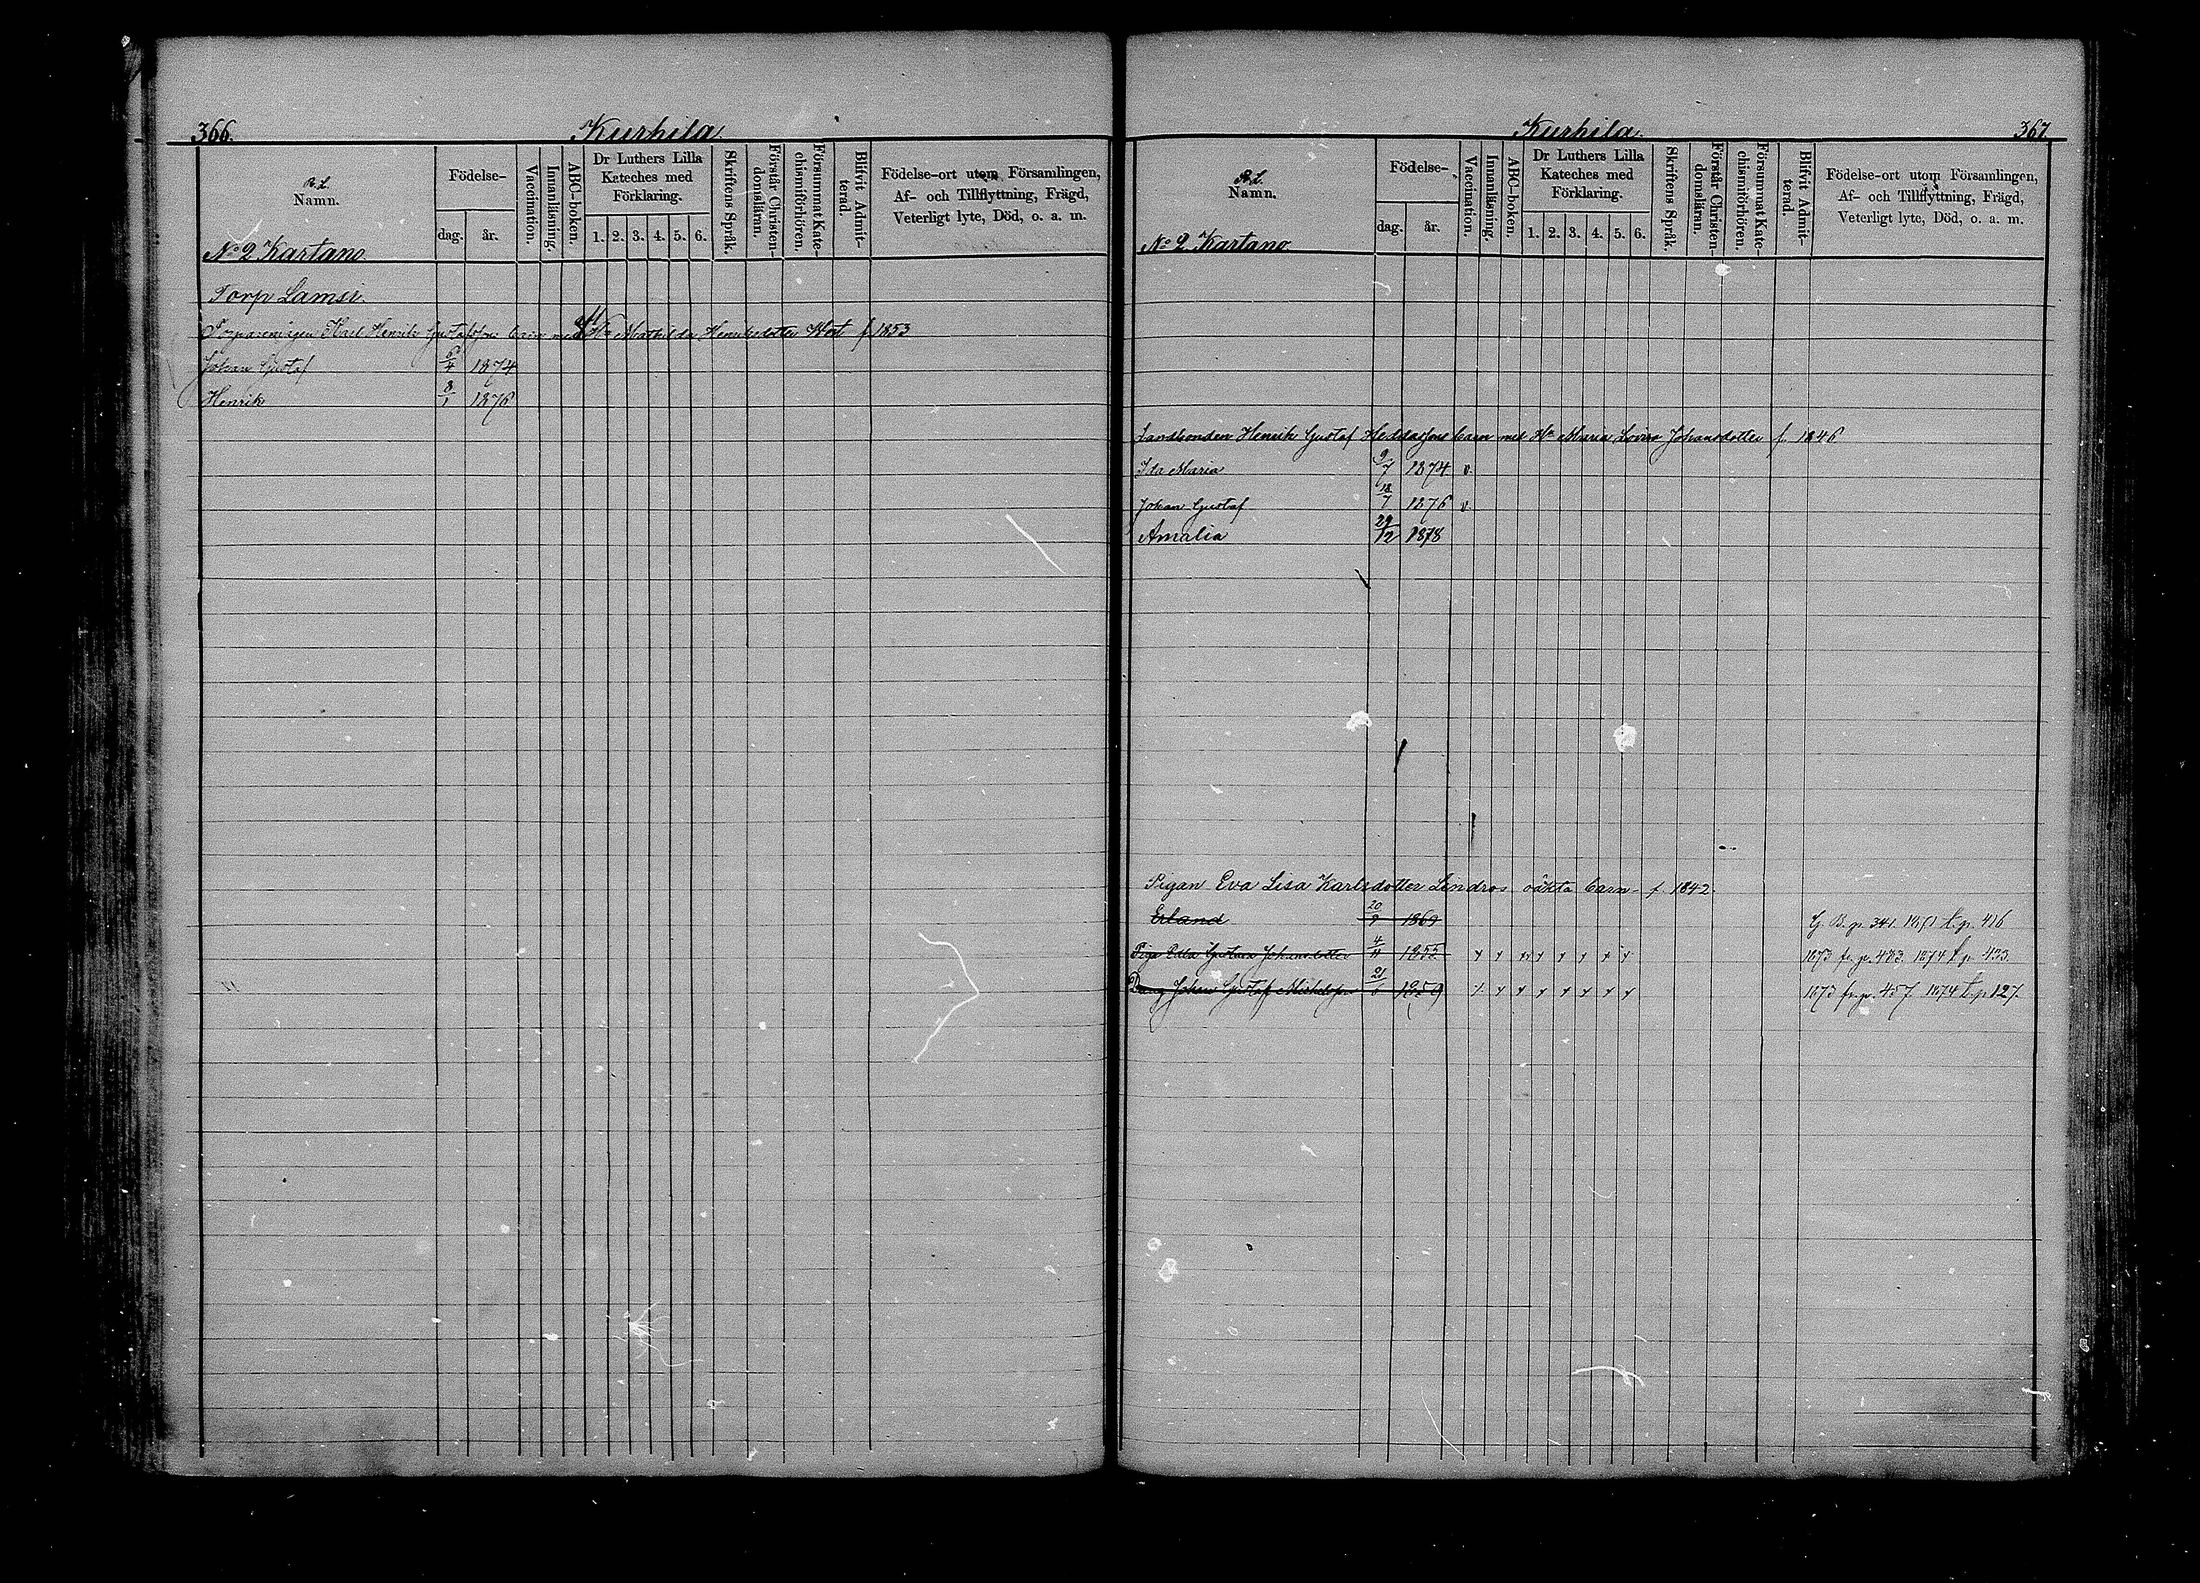 366.
Kurhila
B. L.
Namn.
Födelse-
dag.
år.
Vaccination.
Innanläsning.
ABC-boken.
Dr Luthers Lilla
Kateches med
Förklaring.
1. 2. 3. 4. 5. 6.
Skriftens Språk.
Förstår Christen-
domsläran.
Försummat Kate-
chismiförhören.
Blifvit Admit-
terad.
Födelse-ort utom Församlingen,
Af- och Tillflyttning, Frägd,
Veterligt lyte, Död, o. a. m.
No 2 Kartano
Torp Lamsi
Karl Henrik Gustafssons barn med Hu Mathilda Henriksdotter f. 1853
Johan Gustaf 5/4 1874
Henrik 8/1 1876
Kurhila
367.
B. L.
Namn.
Födelse-
dag.
år.
Vaccination.
Innanläsning.
ABC-boken.
Dr Luthers Lilla
Kateches med
Förklaring.
1. 2. 3. 4. 5. 6.
Skriftens Språk.
Förstår Christen-
domsläran.
Försummat Kate-
chismiförhören.
Blifvit Admit-
terad.
Födelse-ort utom Församlingen,
Af- och Tillflyttning, Frägd,
Veterligt lyte, Död, o. a. m.
No 2 Kartano
Landbonden Henrik Gustaf barn med Hu Maria Johansdotter f. 1846
Ida Maria 9/7 1874 v.
Johan Gustaf 18/7 1876 v
Amalia 29/12 1878
Pigan Eva Lisa Karlsdotter Lindros oäkta barn f. 1842
Erland 20/9 1869 G. B. p. 341. t. p. 416
Piga Gustava Johansdotter 4/11 1855 x x x x x x x x 1873 fr. p. 483. 1874 t. p. 433.
Dräng Johan Gustaf 21/6 1859 x x x x x x x x 1873 fr. p. 457. 1874 t. p. 127.